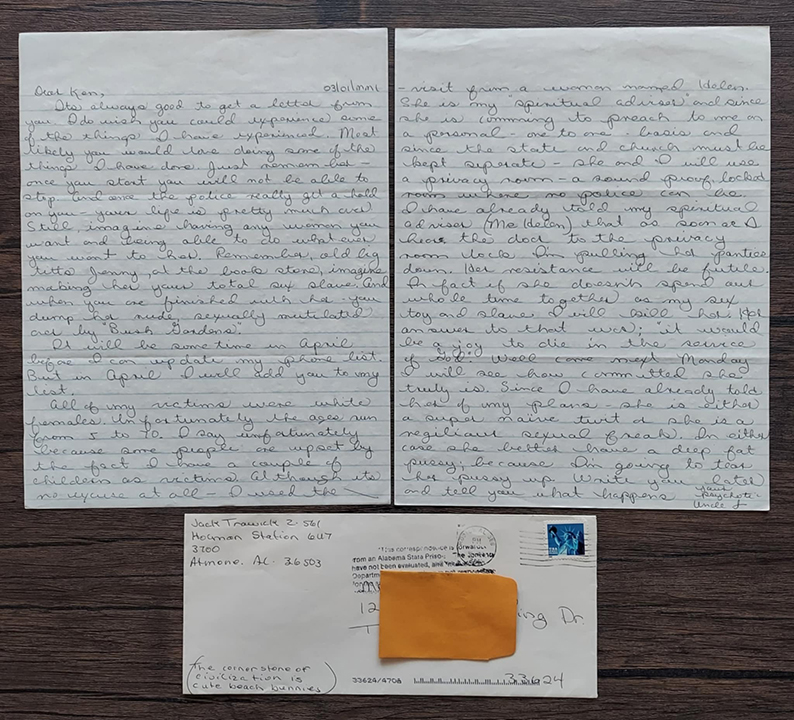 Dear Ken, 03/01/mm1
Its always good to get a letter from
you. I do wish you could experience some
of the things I have experienced. Most
likely you would love doing some of the
things I have done. Just remember -
once you start you will not be able to
stop and once the police really get a hold
on you - your life is pretty much over
Still imagine having any women you
want and being able to do whatever
you want to her. Remember, old big
titts Jenny, at the book store, imagine
making her your total sex slave. And
when you are finished with her you
dump her nude sexually mutilated
over by "Bush Gardens".
It will be some time in April
before I can update my phone list.
But in April I will add you to my
list.
All of my victims were white
females. Unfortunately the ages run
from 5 to 70. I say unfortunately
because some people are upset by
the fact I have a couple of
children as victims. Although its
no excuse at all - I used the
- visit from a woman named Helen.
She is my "spiritual adviser" and since
she is comming to preach to me on
a personal - one to one - basis and
since the state and church must be
kept seperate - she and I will use
a privacy room - a sound proof, locked
room where no police can be.
I have already told my spiritual
adviser (Ms Helen) that as soon as I
hear the door to the privacy
room lock I'm pulling her panties
down. Her resistance will be futile.
In fact if she doesn't spend our
whole time together as my sex
toy and slave I will kill her. Her
answer to that was; "it would
be a joy to die in the service
of God." Well come next Monday
I will see how committed she
truly is. Since I have already told
her of my plans - she is either
a super naive twit or she is a
regiliaus sexual freak. In either
case she better have a deep fat
pussy; because I'm going to tear
her pussy up. Write you later
and tell you what happens
your
psychotic
Uncle J
Jack Trawick Z-561
Holman Station 6U7
3700
Atmore, AL. 36503
"This correspondence is forwarded
from an Alabama State Prison. The contents
have not been evaluated, and the Alabama
Department
12 ing Dr.
T
33624/4708 33624
(The cornerstone of
civilization is
cute beach bunnies)